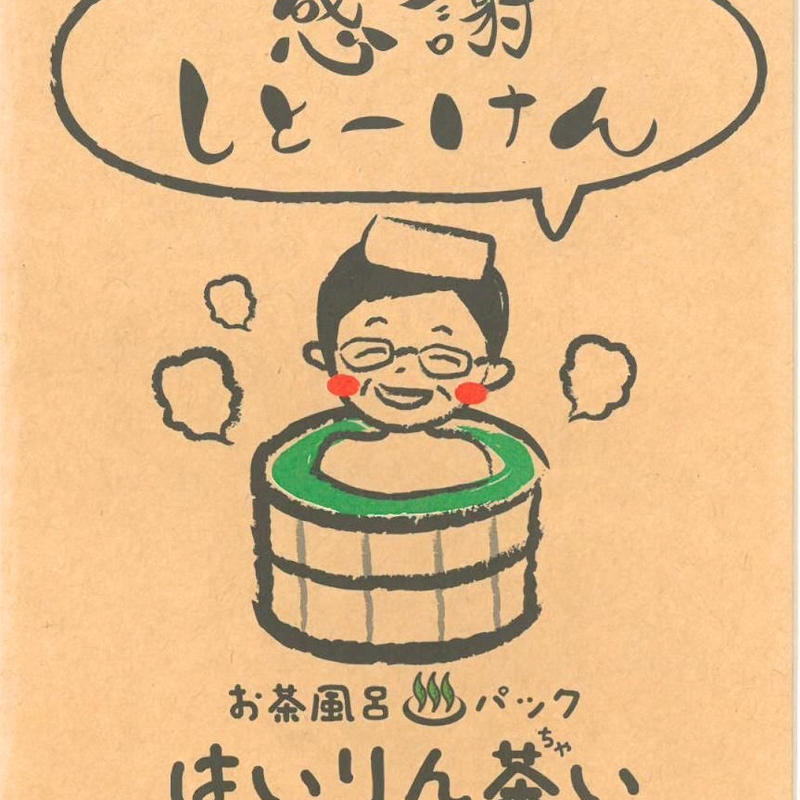 感謝
しとーけん
お茶風呂♨パック
はいりん茶い
ちゃ